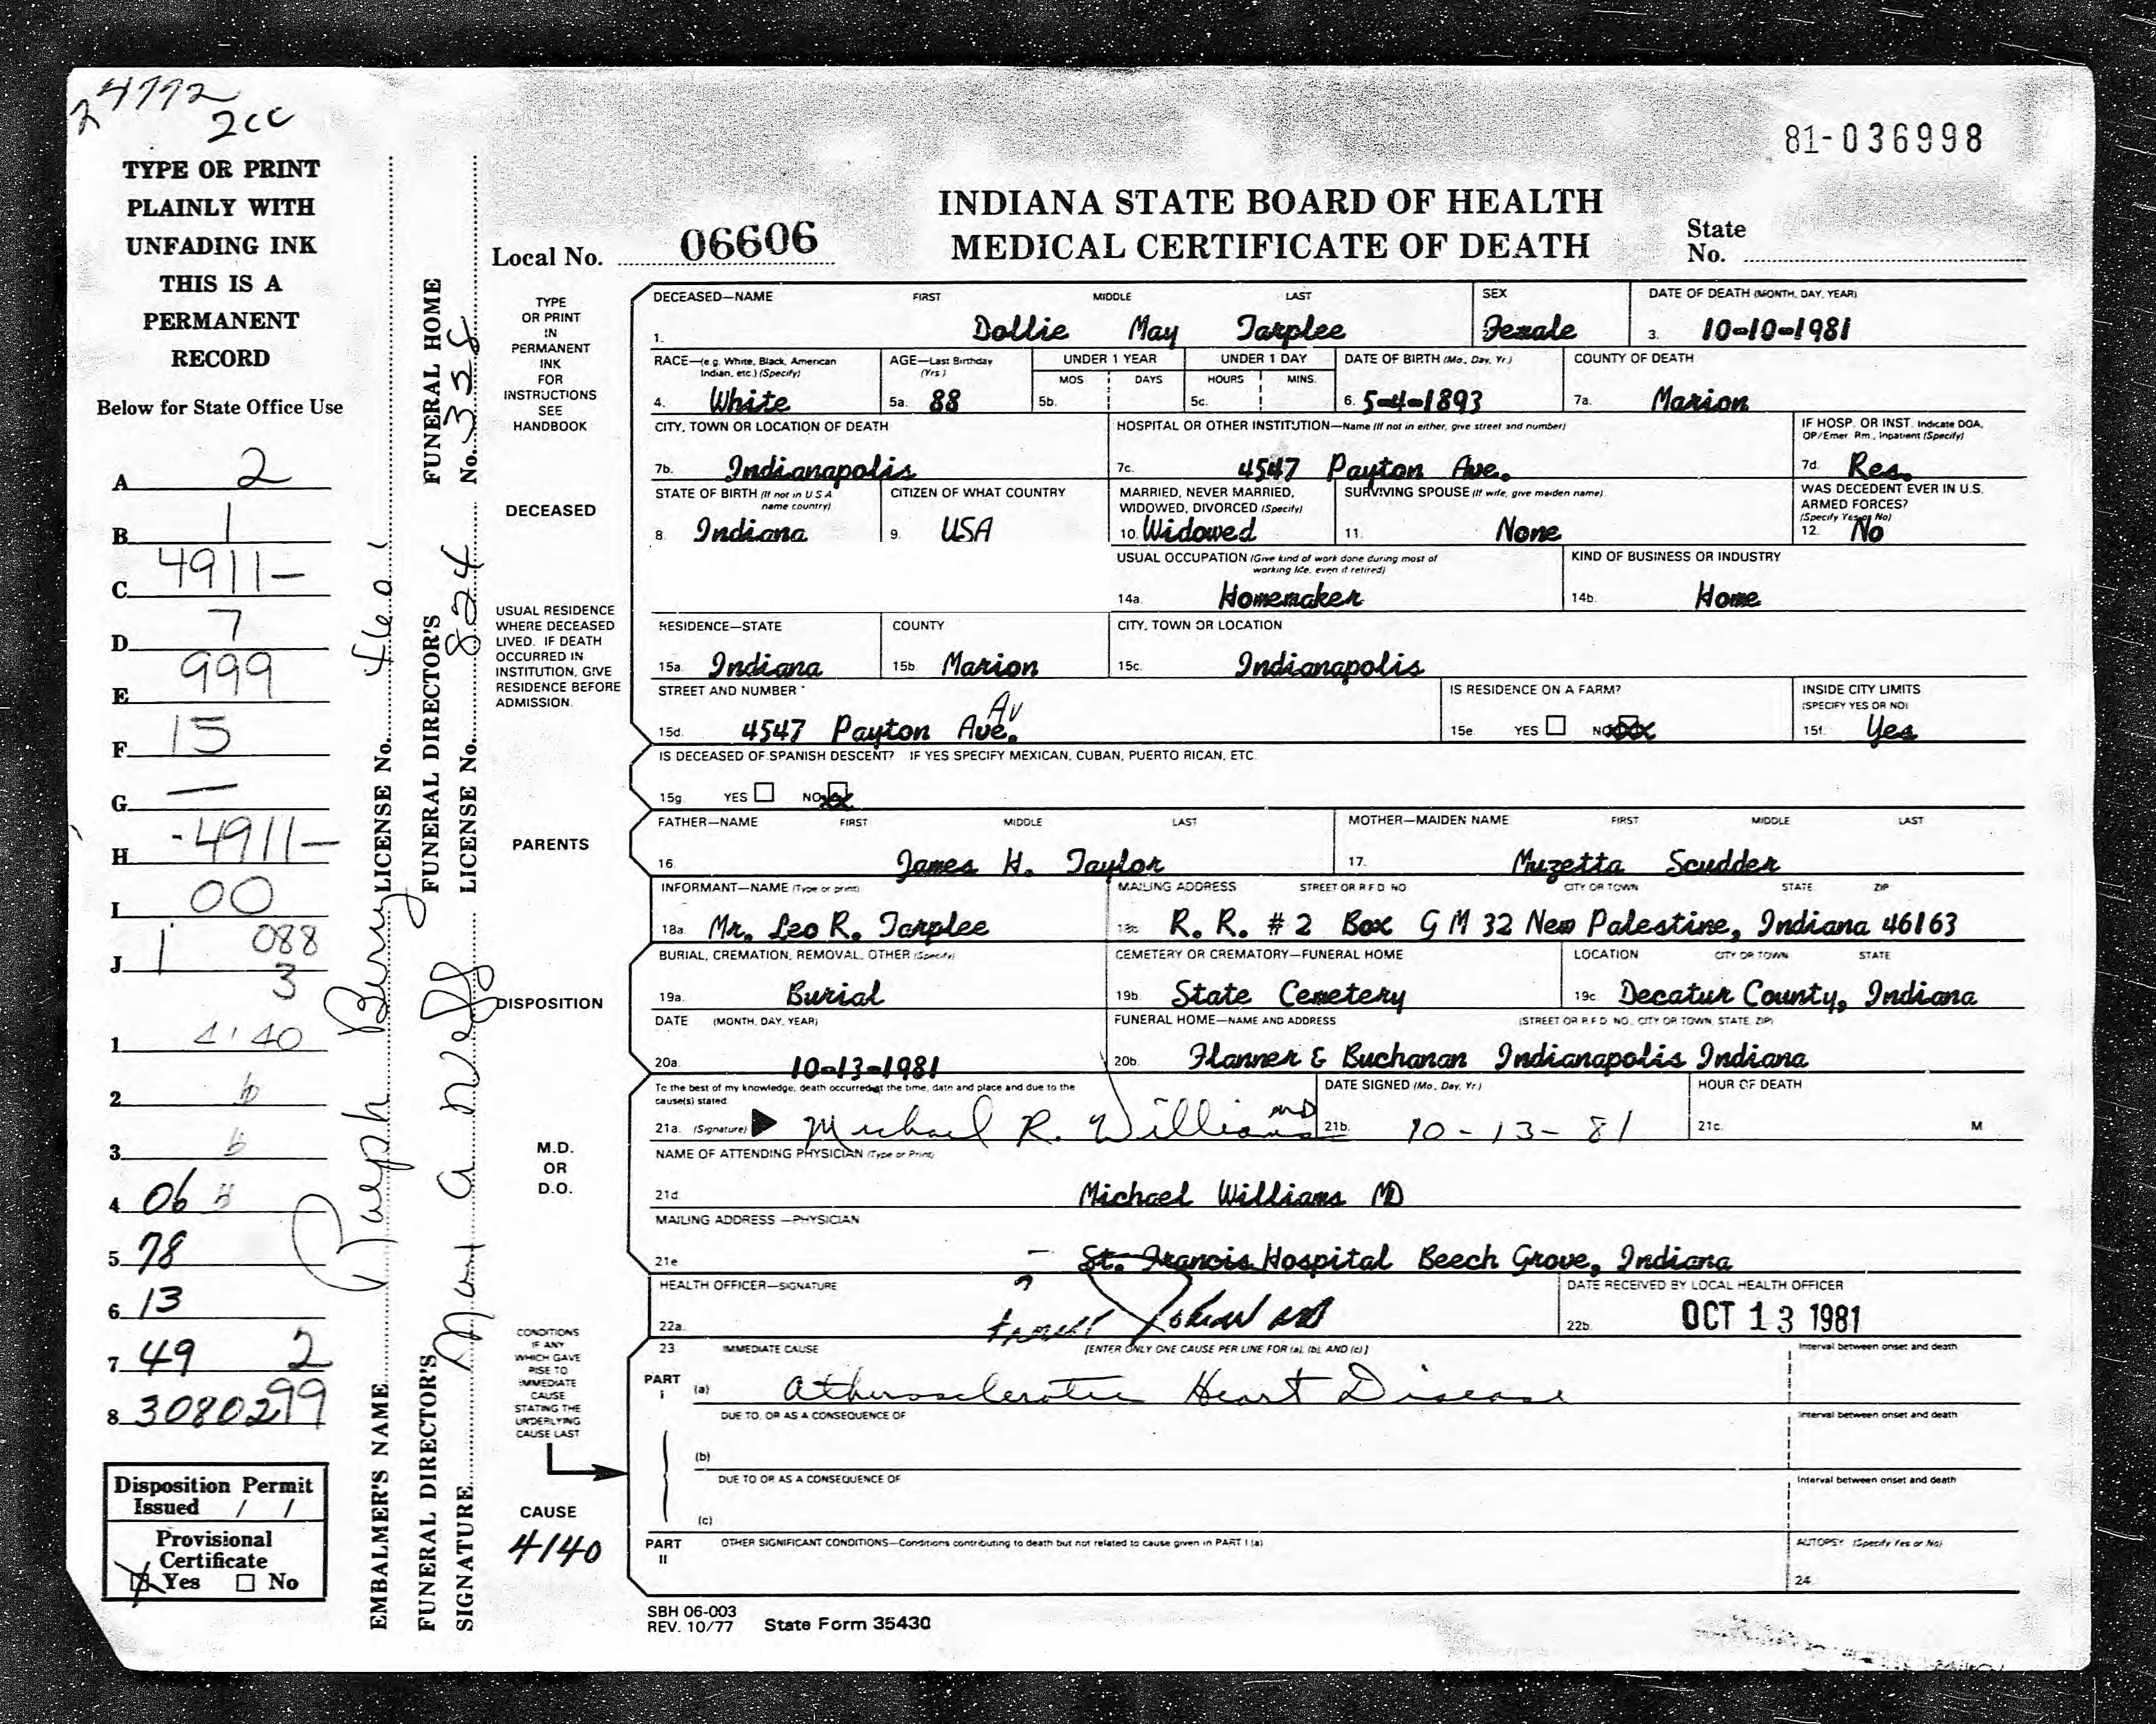 24772
2cc
81-036998
TYPE OR PRINT
PLAINLY WITH
UNFADING INK
THIS IS A
PERMANENT
RECORD
Below for State Office Use
A 2
B 1
C 4911-
D 7
E 999
F 15
G —
H -4911-
I 00
J 1 088
3
1 4140
2 6
3 6
4 06
5 78
6 13
7 49 2
8 3080299
Disposition Permit
Issued / /
Provisional
Certificate
Yes No
EMBALMER'S NAME Ralph Berry LICENSE No.
FUNERAL DIRECTOR'S FUNERAL DIRECTOR'S FUNERAL HOME
SIGNATURE LICENSE No. 824 No. 358
INDIANA STATE BOARD OF HEALTH
MEDICAL CERTIFICATE OF DEATH
Local No. 06606
State
No.
TYPE
OR PRINT
IN
PERMANENT
INK
FOR
INSTRUCTIONS
SEE
HANDBOOK
DECEASED
USUAL RESIDENCE
WHERE DECEASED
LIVED. IF DEATH
OCCURRED IN
INSTITUTION, GIVE
RESIDENCE BEFORE
ADMISSION.
PARENTS
DISPOSITION
M.D.
OR
D.O.
CONDITIONS
IF ANY
WHICH GAVE
RISE TO
IMMEDIATE
CAUSE
STATING THE
UNDERLYING
CAUSE LAST
CAUSE
4140
DECEASED—NAME FIRST MIDDLE LAST SEX DATE OF DEATH (MONTH, DAY, YEAR)
1. Dollie May Tarplee Female 3. 10-10-1981
RACE—(e.g. White, Black, American Indian, etc.) (Specify) AGE—Last Birthday (Yrs.) UNDER 1 YEAR UNDER 1 DAY DATE OF BIRTH (Mo., Day, Yr.) COUNTY OF DEATH
MOS DAYS HOURS MINS.
4. White 5a. 88 5b. 5c. 6. 5-4-1893 7a. Marion
CITY, TOWN OR LOCATION OF DEATH HOSPITAL OR OTHER INSTITUTION—Name (If not in either, give street and number) IF HOSP. OR INST. Indicate DOA, OP/Emer. Rm., Inpatient (Specify)
7b. Indianapolis 7c. 4547 Payton Ave. 7d. Res.
STATE OF BIRTH (If not in U S A name country) CITIZEN OF WHAT COUNTRY MARRIED, NEVER MARRIED, WIDOWED, DIVORCED (Specify) SURVIVING SPOUSE (If wife, give maiden name) WAS DECEDENT EVER IN U.S. ARMED FORCES? (Specify Yes or No)
8. Indiana 9. USA 10. Widowed 11. None 12. No
USUAL OCCUPATION (Give kind of work done during most of working life, even if retired) KIND OF BUSINESS OR INDUSTRY
14a. Homemaker 14b. Home
RESIDENCE—STATE COUNTY CITY, TOWN OR LOCATION
15a. Indiana 15b. Marion 15c. Indianapolis
STREET AND NUMBER IS RESIDENCE ON A FARM? INSIDE CITY LIMITS (SPECIFY YES OR NO)
Av
15d. 4547 Payton Ave. 15e YES NO 15f. Yes
IS DECEASED OF SPANISH DESCENT? IF YES SPECIFY MEXICAN, CUBAN, PUERTO RICAN, ETC.
15g. YES NO
FATHER—NAME FIRST MIDDLE LAST MOTHER—MAIDEN NAME FIRST MIDDLE LAST
16. James H. Taylor 17. Muzetta Scudder
INFORMANT—NAME (Type or print) MAILING ADDRESS STREET OR R.F.D. NO. CITY OR TOWN STATE ZIP
18a. Mr. Leo R. Tarplee 18b. R. R. # 2 Box G M 32 New Palestine, Indiana 46163
BURIAL, CREMATION, REMOVAL, OTHER (Specify) CEMETERY OR CREMATORY—FUNERAL HOME LOCATION CITY OR TOWN STATE
19a. Burial 19b. State Cemetery 19c. Decatur County, Indiana
DATE (MONTH, DAY, YEAR) FUNERAL HOME—NAME AND ADDRESS (STREET OR R.F.D. NO., CITY OR TOWN, STATE, ZIP)
20a. 10-13-1981 20b. Flanner & Buchanan Indianapolis Indiana
To the best of my knowledge, death occurred at the time, date and place and due to the cause(s) stated DATE SIGNED (Mo., Day, Yr.) HOUR OF DEATH
21a. (Signature) Michael R. Williams MD 21b. 10-13-81 21c. M
NAME OF ATTENDING PHYSICIAN (Type or Print)
21d. Michael Williams MD
MAILING ADDRESS —PHYSICIAN
21e. St. Francis Hospital Beech Grove, Indiana
HEALTH OFFICER—SIGNATURE DATE RECEIVED BY LOCAL HEALTH OFFICER
22a. 22b. OCT 13 1981
23 IMMEDIATE CAUSE [ENTER ONLY ONE CAUSE PER LINE FOR (a), (b), AND (c)] Interval between onset and death
PART I (a) Atherosclerotic Heart Disease
DUE TO, OR AS A CONSEQUENCE OF Interval between onset and death
(b)
DUE TO OR AS A CONSEQUENCE OF Interval between onset and death
(c)
PART II OTHER SIGNIFICANT CONDITIONS—Conditions contributing to death but not related to cause given in PART I (a) AUTOPSY (Specify Yes or No)
24.
SBH 06-003
REV. 10/77 State Form 35430